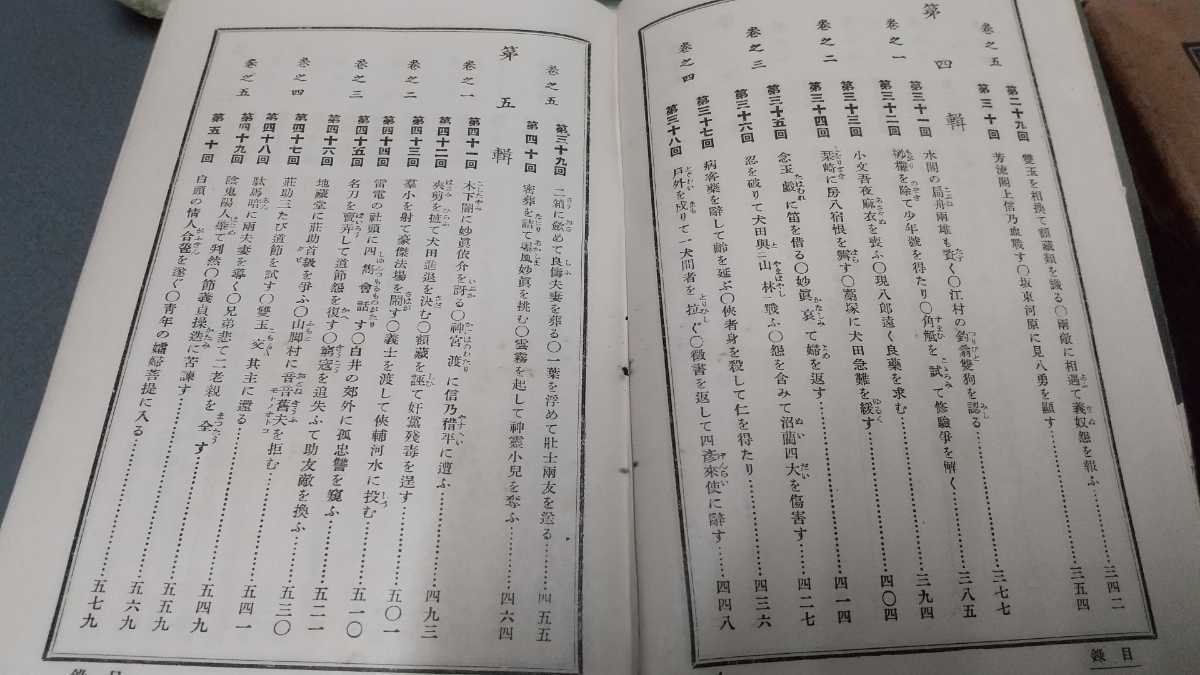 卷之五
第二十九回 雙玉を相換て額藏類を識る〇兩敵に相遇て義奴怨を報ふ 三四二
第三十回 芳流閣上信乃血戰す〇坂東河原に見八勇を顯す 三五四
第四輯
卷之一
第三十一回 水閣の扁舟兩雄を資く〇江村の釣翁雙狗を認る 三七七
第三十二回 を除て少年號を得たり〇角觝を試て修驗爭を解く 三八五
卷之二
第三十三回 小文吾夜麻衣を喪ふ〇現八郎遠く良藥を求む 三九四
第三十四回 栞崎に房八宿恨を霽す〇藁塚に犬田急難を緩す 四〇四
卷之三
第三十五回 念玉戲に笛を借る〇妙眞哀て婦を返す 四一四
第三十六回 忍を破りて犬田與山林戰ふ〇怨を含みて沼藺四大を傷害す 四二七
卷之四
第三十七回 病客藥を辭して齡を延ぶ〇俠者身を殺して仁を得たり 四三六
第三十八回 戶外を戍りて一犬間者を拉ぐ〇徵書を返して四彥來使に辭す 四四八
目錄
卷之五
第三十九回 二箱に斂めて良儔夫妻を葬る〇一葉を浮めて壯士兩友を送る 四五五
第四十回 密葬を詰て暴風妙眞を挑む〇雲霧を起して神靈小兒を奪ふ 四六四
第五輯
卷之一
第四十一回 木下闇に妙眞依介を訝る〇神宮渡に信乃稽平に遭ふ
第四十二回 夾剪を摭て犬田進退を決む〇額藏を誣て奸黨殘毒を逞す 四九三
卷之二
第四十三回 羣小を射て豪傑法場を鬧す〇義士を渡して俠輔河水に投む 五〇一
第四十四回 雷電の社頭に四會話す〇白井の郊外に孤忠讐を窺ふ 五一〇
卷之三
第四十五回 名刀を賣弄して道節怨を復す〇窮寇を追失ふて助友敵を換ふ 五二一
第四十六回 地藏堂に莊助首級を爭ふ〇山脚村に音音舊夫を拒む 五三〇
卷之四
第四十七回 莊助三たび道節を試す〇雙玉交其主に還る 五四一
第四十八回 駄馬暗に兩夫妻を導く〇兄弟悲て二老親を全す 五四九
卷之五
第四十九回 陰鬼陽人肇て判然〇節義貞操迭に苦諫す 五五九
第五十回 白頭の情人合卺を遂ぐ〇靑年の孀婦菩提に入る 五六九
五七九
目錄